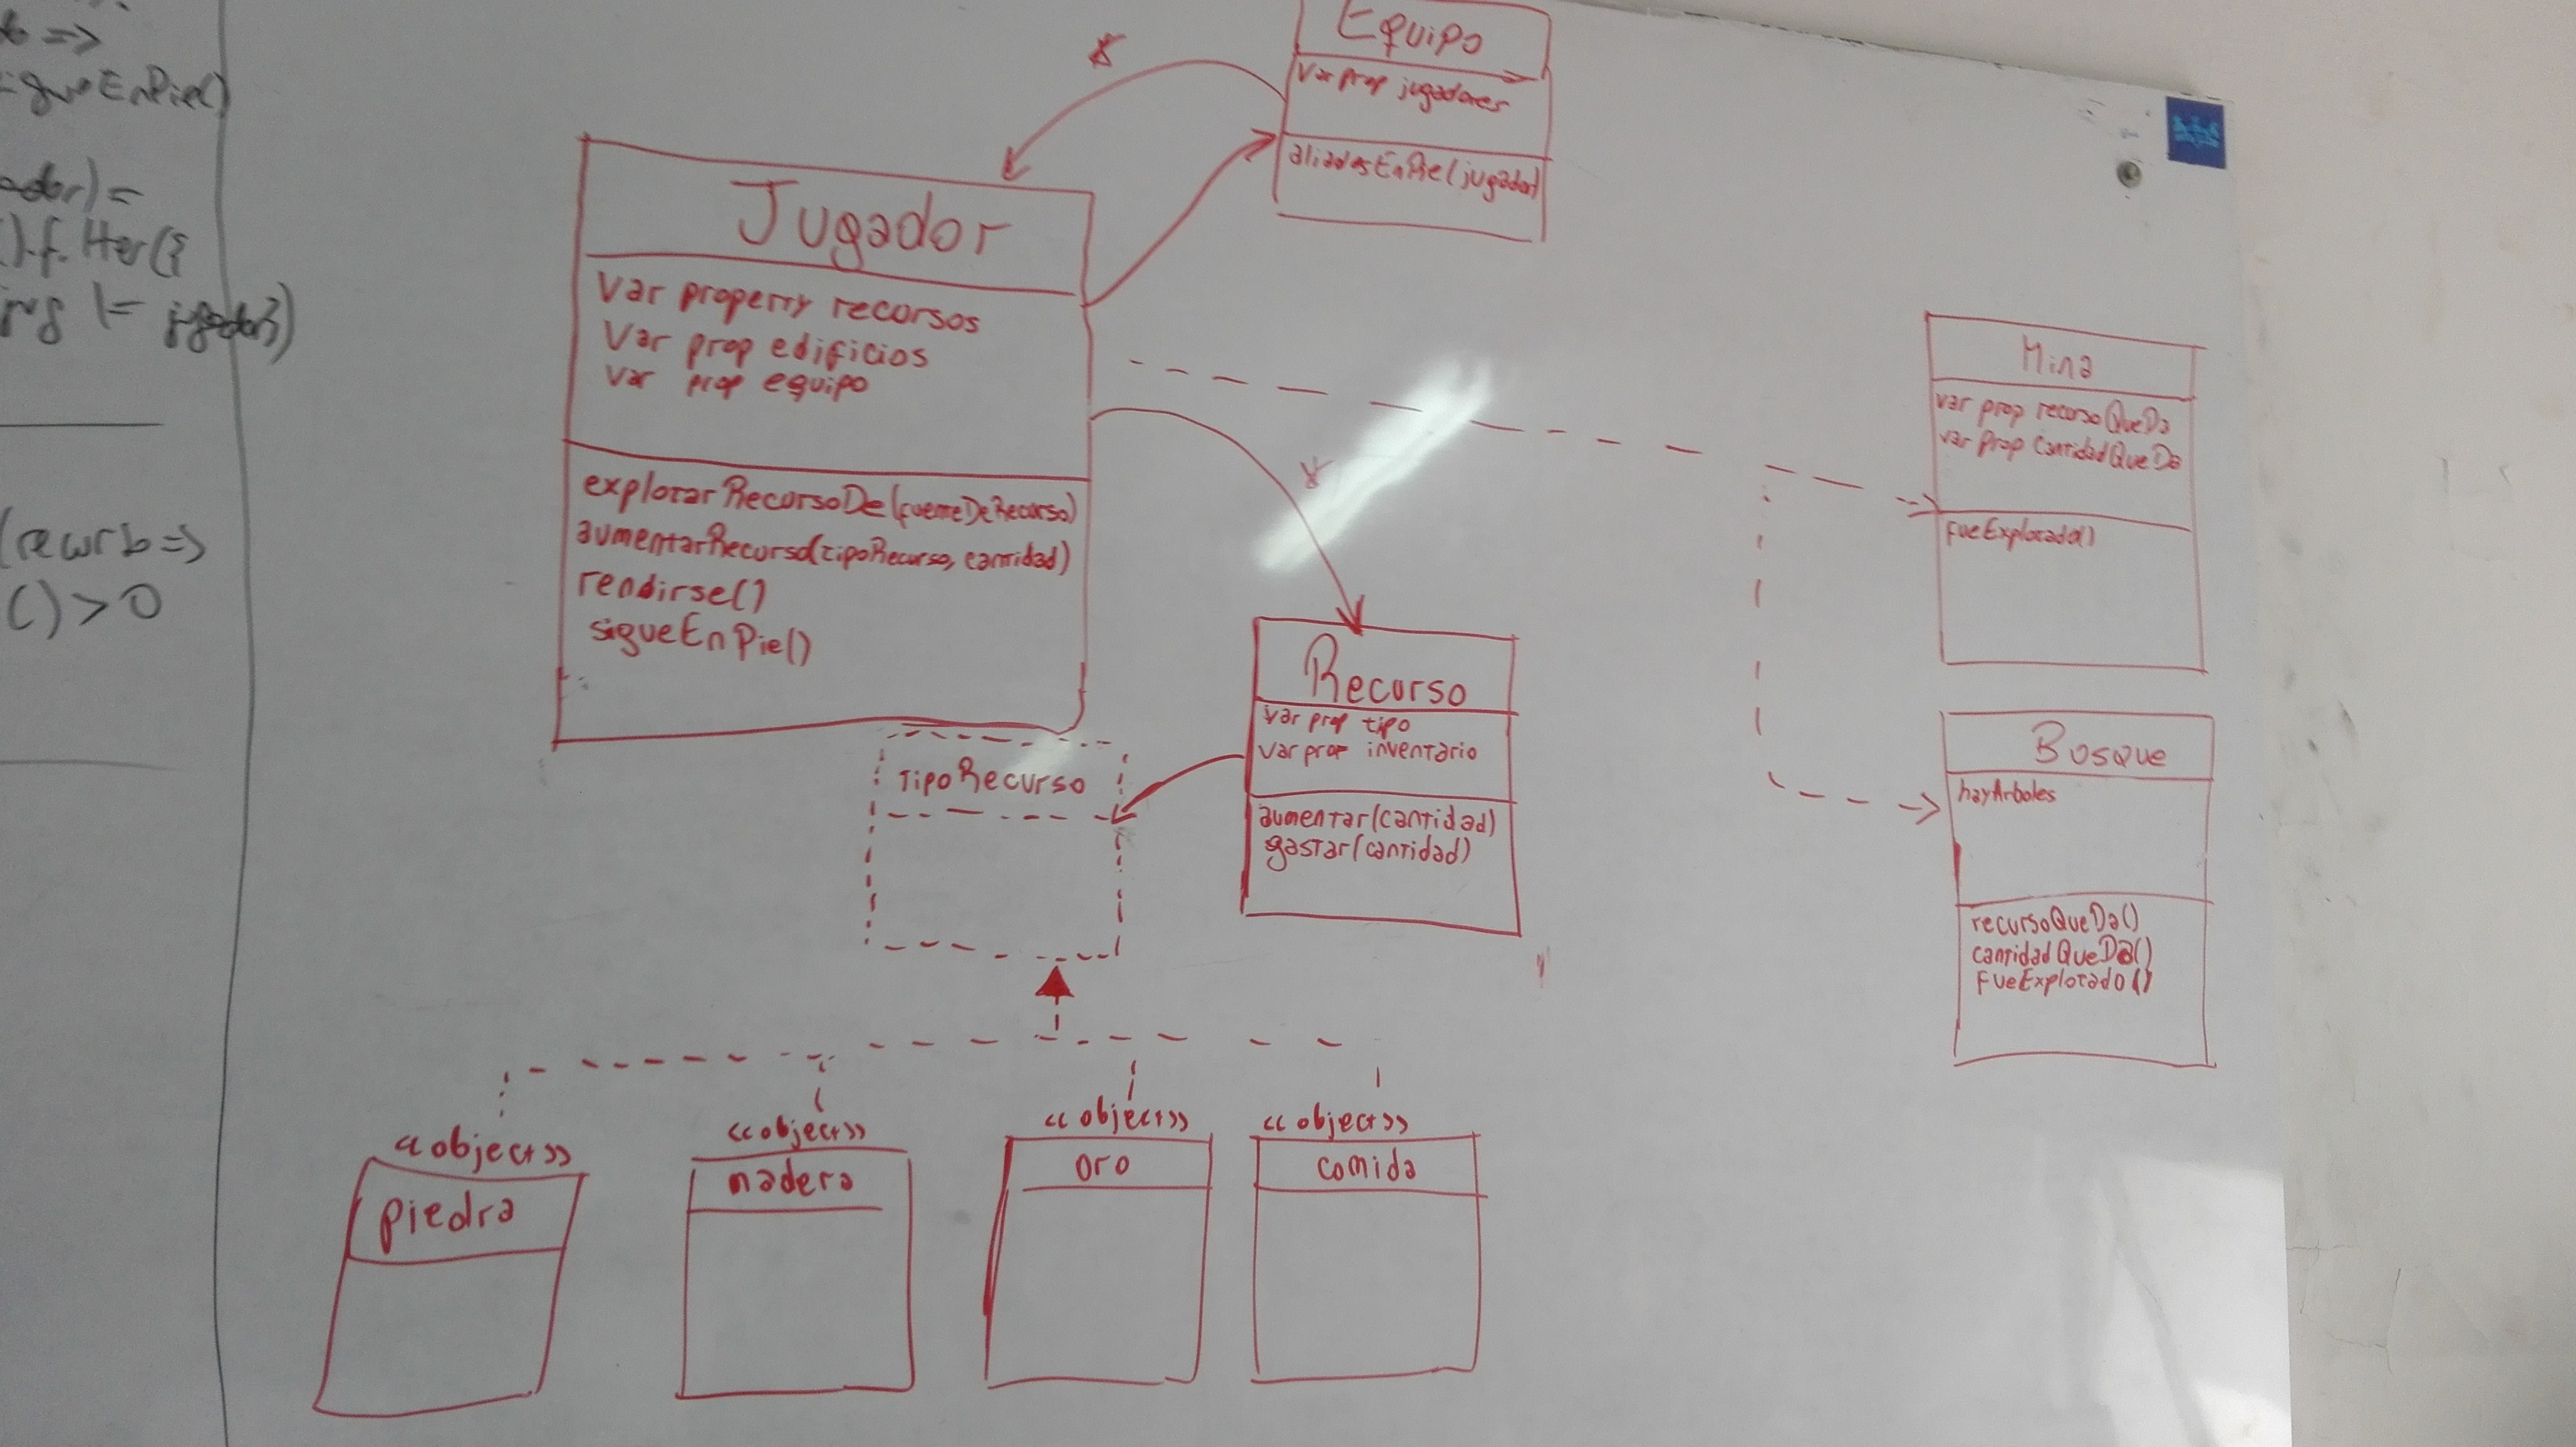 =>
igueEnPie()
ador) =
().filter({
jug != jugador})
(recurso =>
() > 0
Equipo
Var prop jugadores
aliadosEnPie(jugador)
*
Jugador
Var property recursos
Var prop edificios
Var prop equipo
explotarRecursoDe(fuenteDeRecurso)
aumentarRecurso(tipoRecurso, cantidad)
rendirse()
sigueEnPie()
*
Mina
var prop recursoQueDa
var prop cantidadQueDa
fueExplotado()
Recurso
var prop tipo
var prop inventario
aumentar(cantidad)
gastar(cantidad)
TipoRecurso
Bosque
hayArboles
recursoQueDa()
cantidadQueDa()
fueExplotado()
<<object>>
piedra
<<object>>
madera
<<object>>
oro
<<object>>
comida